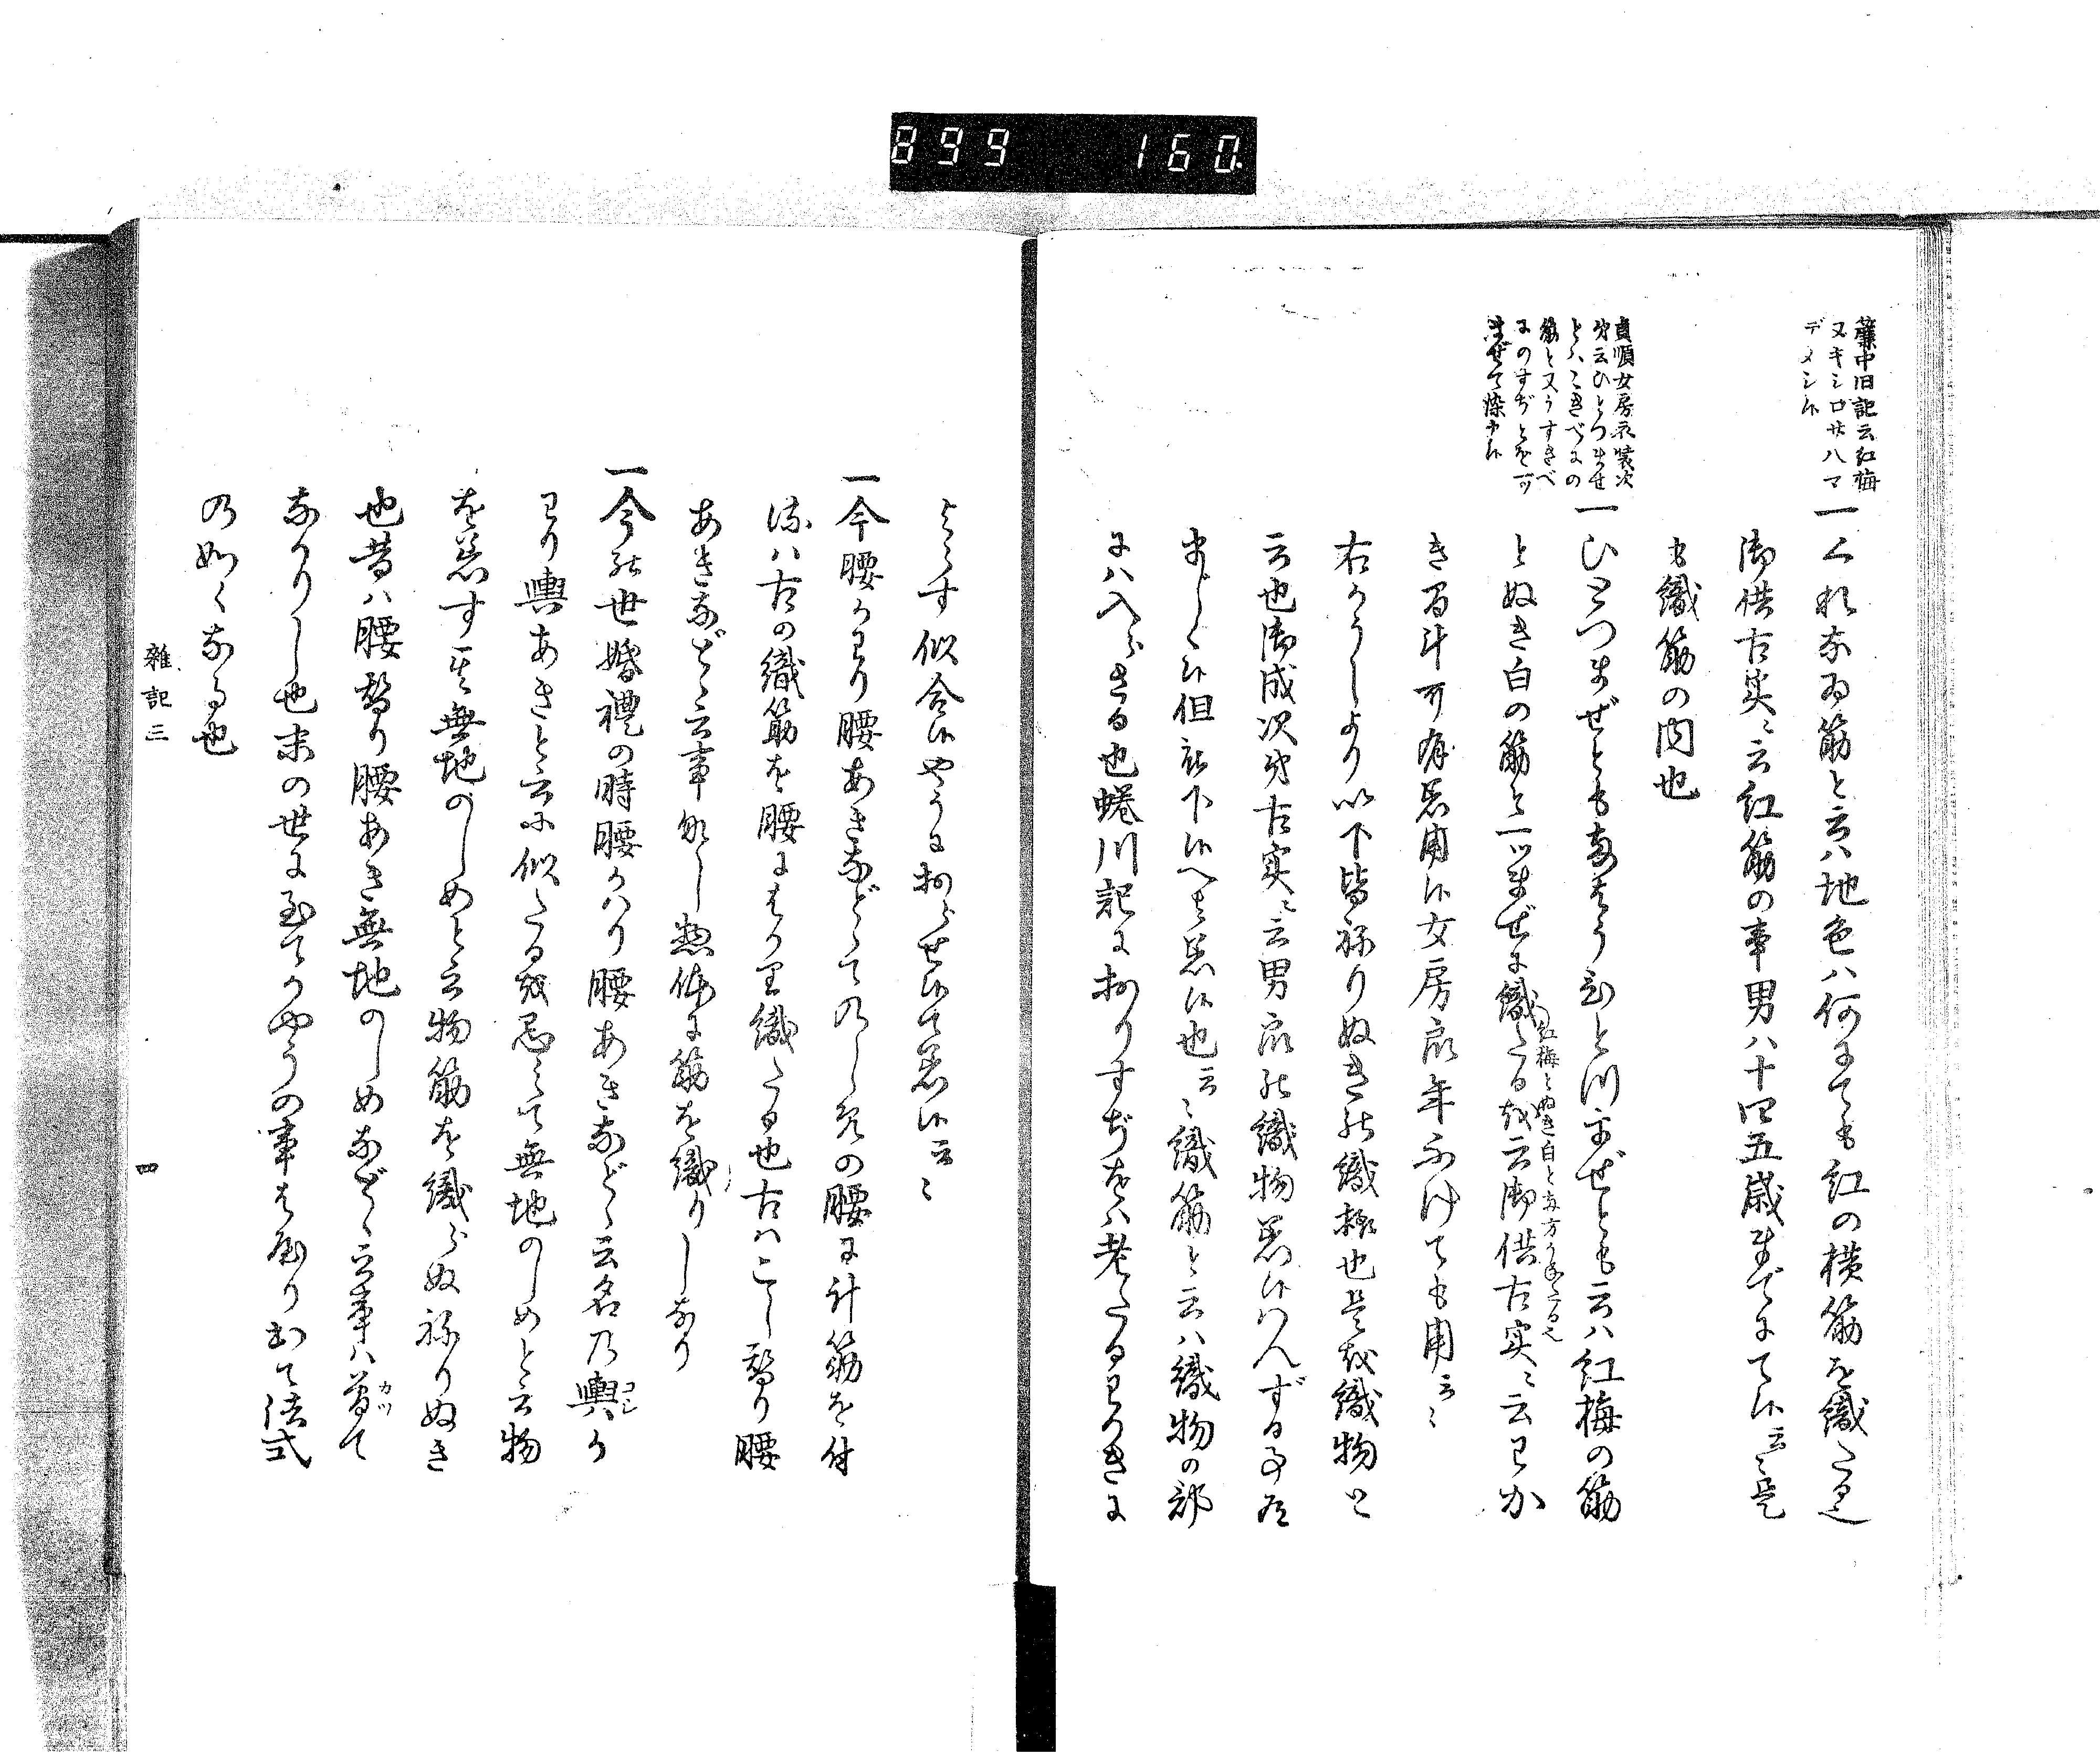 899 160
簾中旧記云紅梅
ヌキシロ廿ハマ
デメシ候
一くれなゐ筋と云ハ地色ハ何にても紅の横筋を織たる也
御供古実ニ云紅筋の事男ハ十四五歳までにて候云々是
も織筋の内也
貞順女房衣装次
第云ひとつませ
とハこきべにの
筋と又うすきべ
にのすぢとを一ツ
まぜて染申候
一ひとつまぜとも
と云ハ紅梅の筋
とぬき白の筋と一ツまぜに織たるを云御供古実ニ云わか
紅梅とぬき白と
き間斗可有着用候女房衆年ふけても用云々
右かうしより以下皆ねりぬきの織様也是を織物と
云也御成次第古実ニ云男衆の織物着候ハんずる事
候也云々織筋と云ハ織物の部
にハ入らざる也蜷川記に
すぢをハ老たるわかきに
よらす似合候やうに
せ候て着候云々
一今腰かわり腰あきなどゝて
の腰に計筋を付
ハ古の織筋を腰にばかり織たる也古ハこし替り腰
あきなどゝ云事なし惣体に筋を織りしなり
一今の世婚禮の時腰かハり腰あきなどゝ云名乃輿か
コシ
わり輿あきと云に似たるを忌て無地のしめと云物
を着す其無地のしめと云物筋を織らぬねりぬき
也昔ハ腰替り腰あき無地のしめなどゝ云事ハ曽て
カツ
なかりし也末の世に至てかやうの事はやり出て法式
の如くなる也
雑記三
四